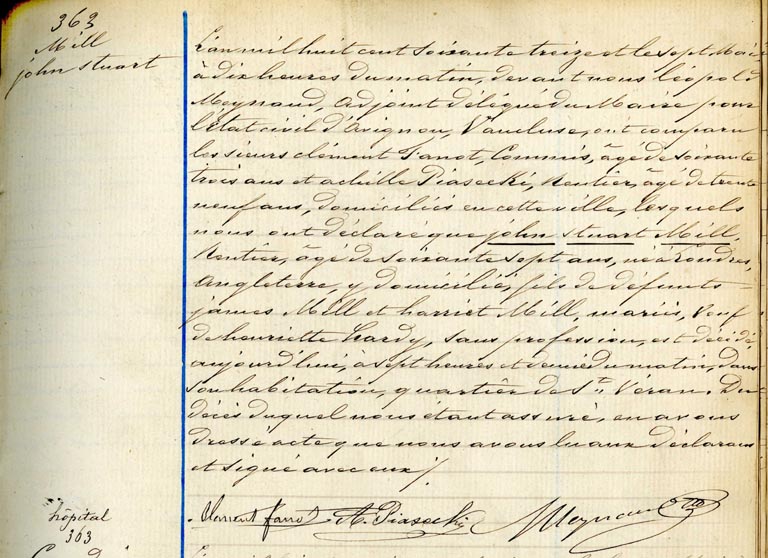 363
Mill
john stuart
L'an mil huit cent soixante treize et le sept Mai
à dix heures du matin, devant nous léopold
Meynaud, adjoint délégué du Maire pour
l'état civil d'Avignon, Vaucluse, ont comparu
les sieurs clément Fanot, Commis, âgé de soixante
trois ans et achille Piasecki, Rentier, âgé de trente
neuf ans, domiciliés en cette ville, lesquels
nous ont déclaré que john Stuart Mill,
Rentier, âgé de soixante sept ans, né à Londres,
Angleterre, y domicilié, fils de défunts =
james Mill et harriet Mill, mariés, veuf
de henriette hardy, sans profession, est décédé
aujourd'hui, à sept heures et demie du matin, dans
son habitation, quartier de St. Véran. Du
décès duquel nous étant assuré, en avons
dressé acte que nous avons lu aux déclarans
et signé avec eux /.
Clément Fanot A. Piasecki Meynaud
hôpital
363